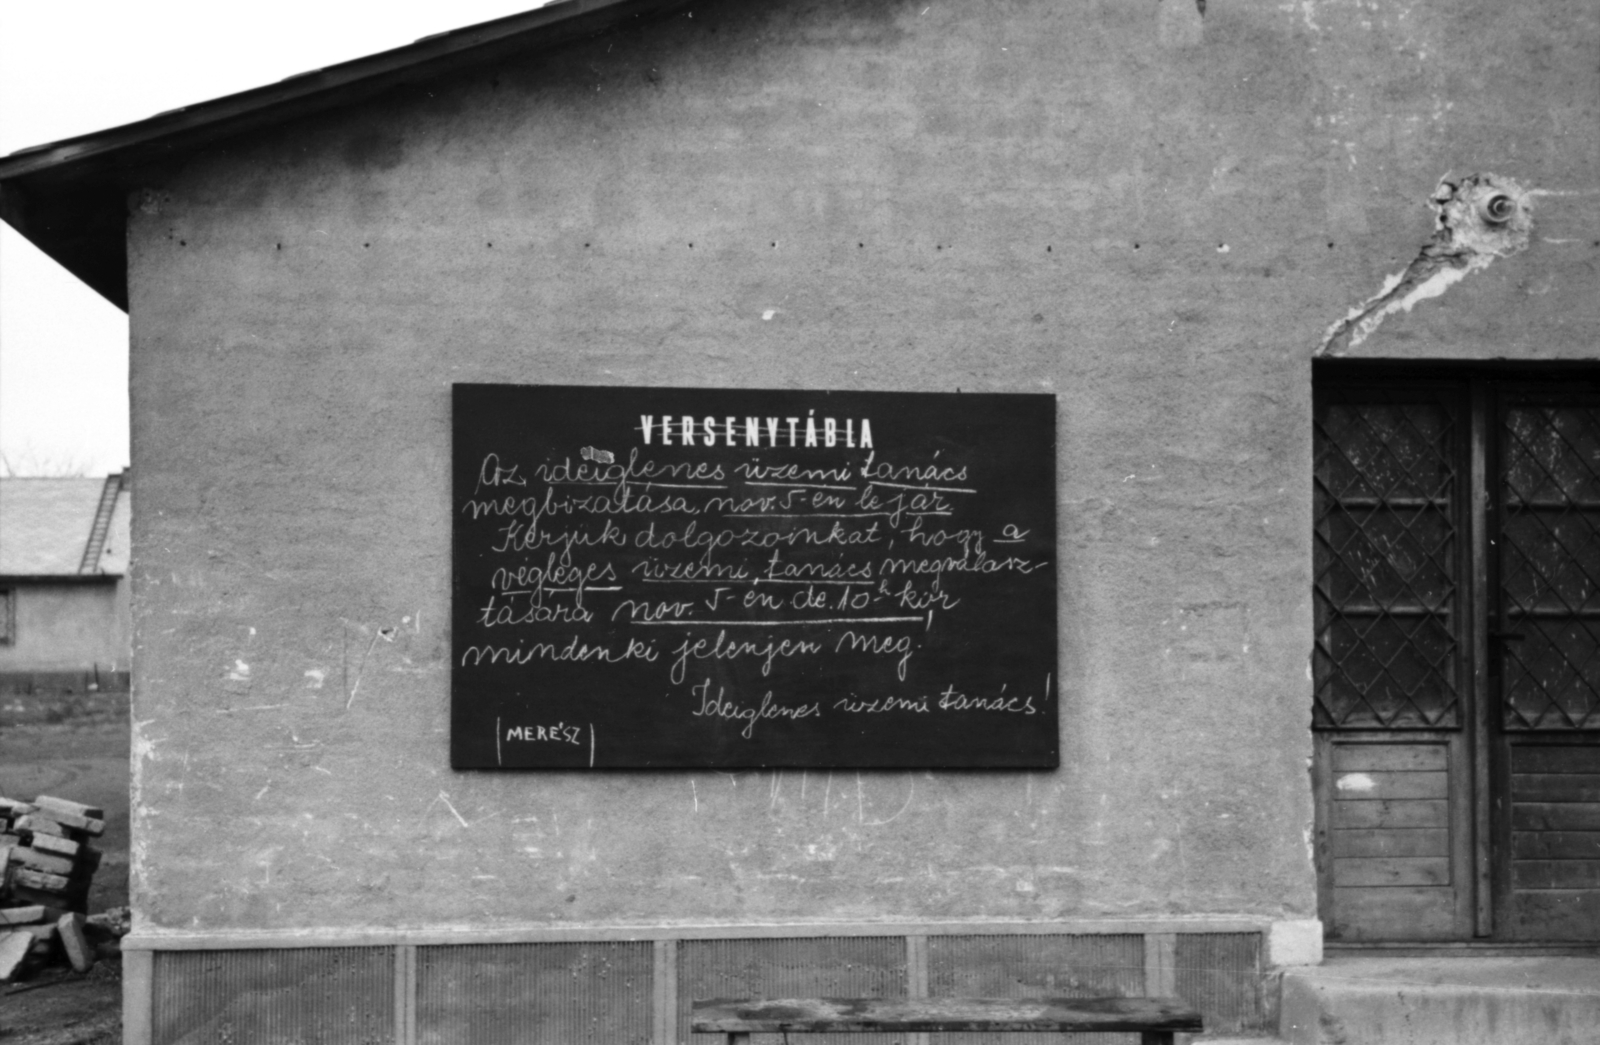 VERSENYTÁBLA
Az ideiglenes üzemi tanács
megbizatása, nov. 5-én lejár.
Kérjük dolgozóinkat, hogy a
végleges üzemi tanács megválasz-
tására nov. 5-én de. 10h-kor,
mindenki jelenjen meg.
Ideiglenes üzemi tanács!
MERÉSZ